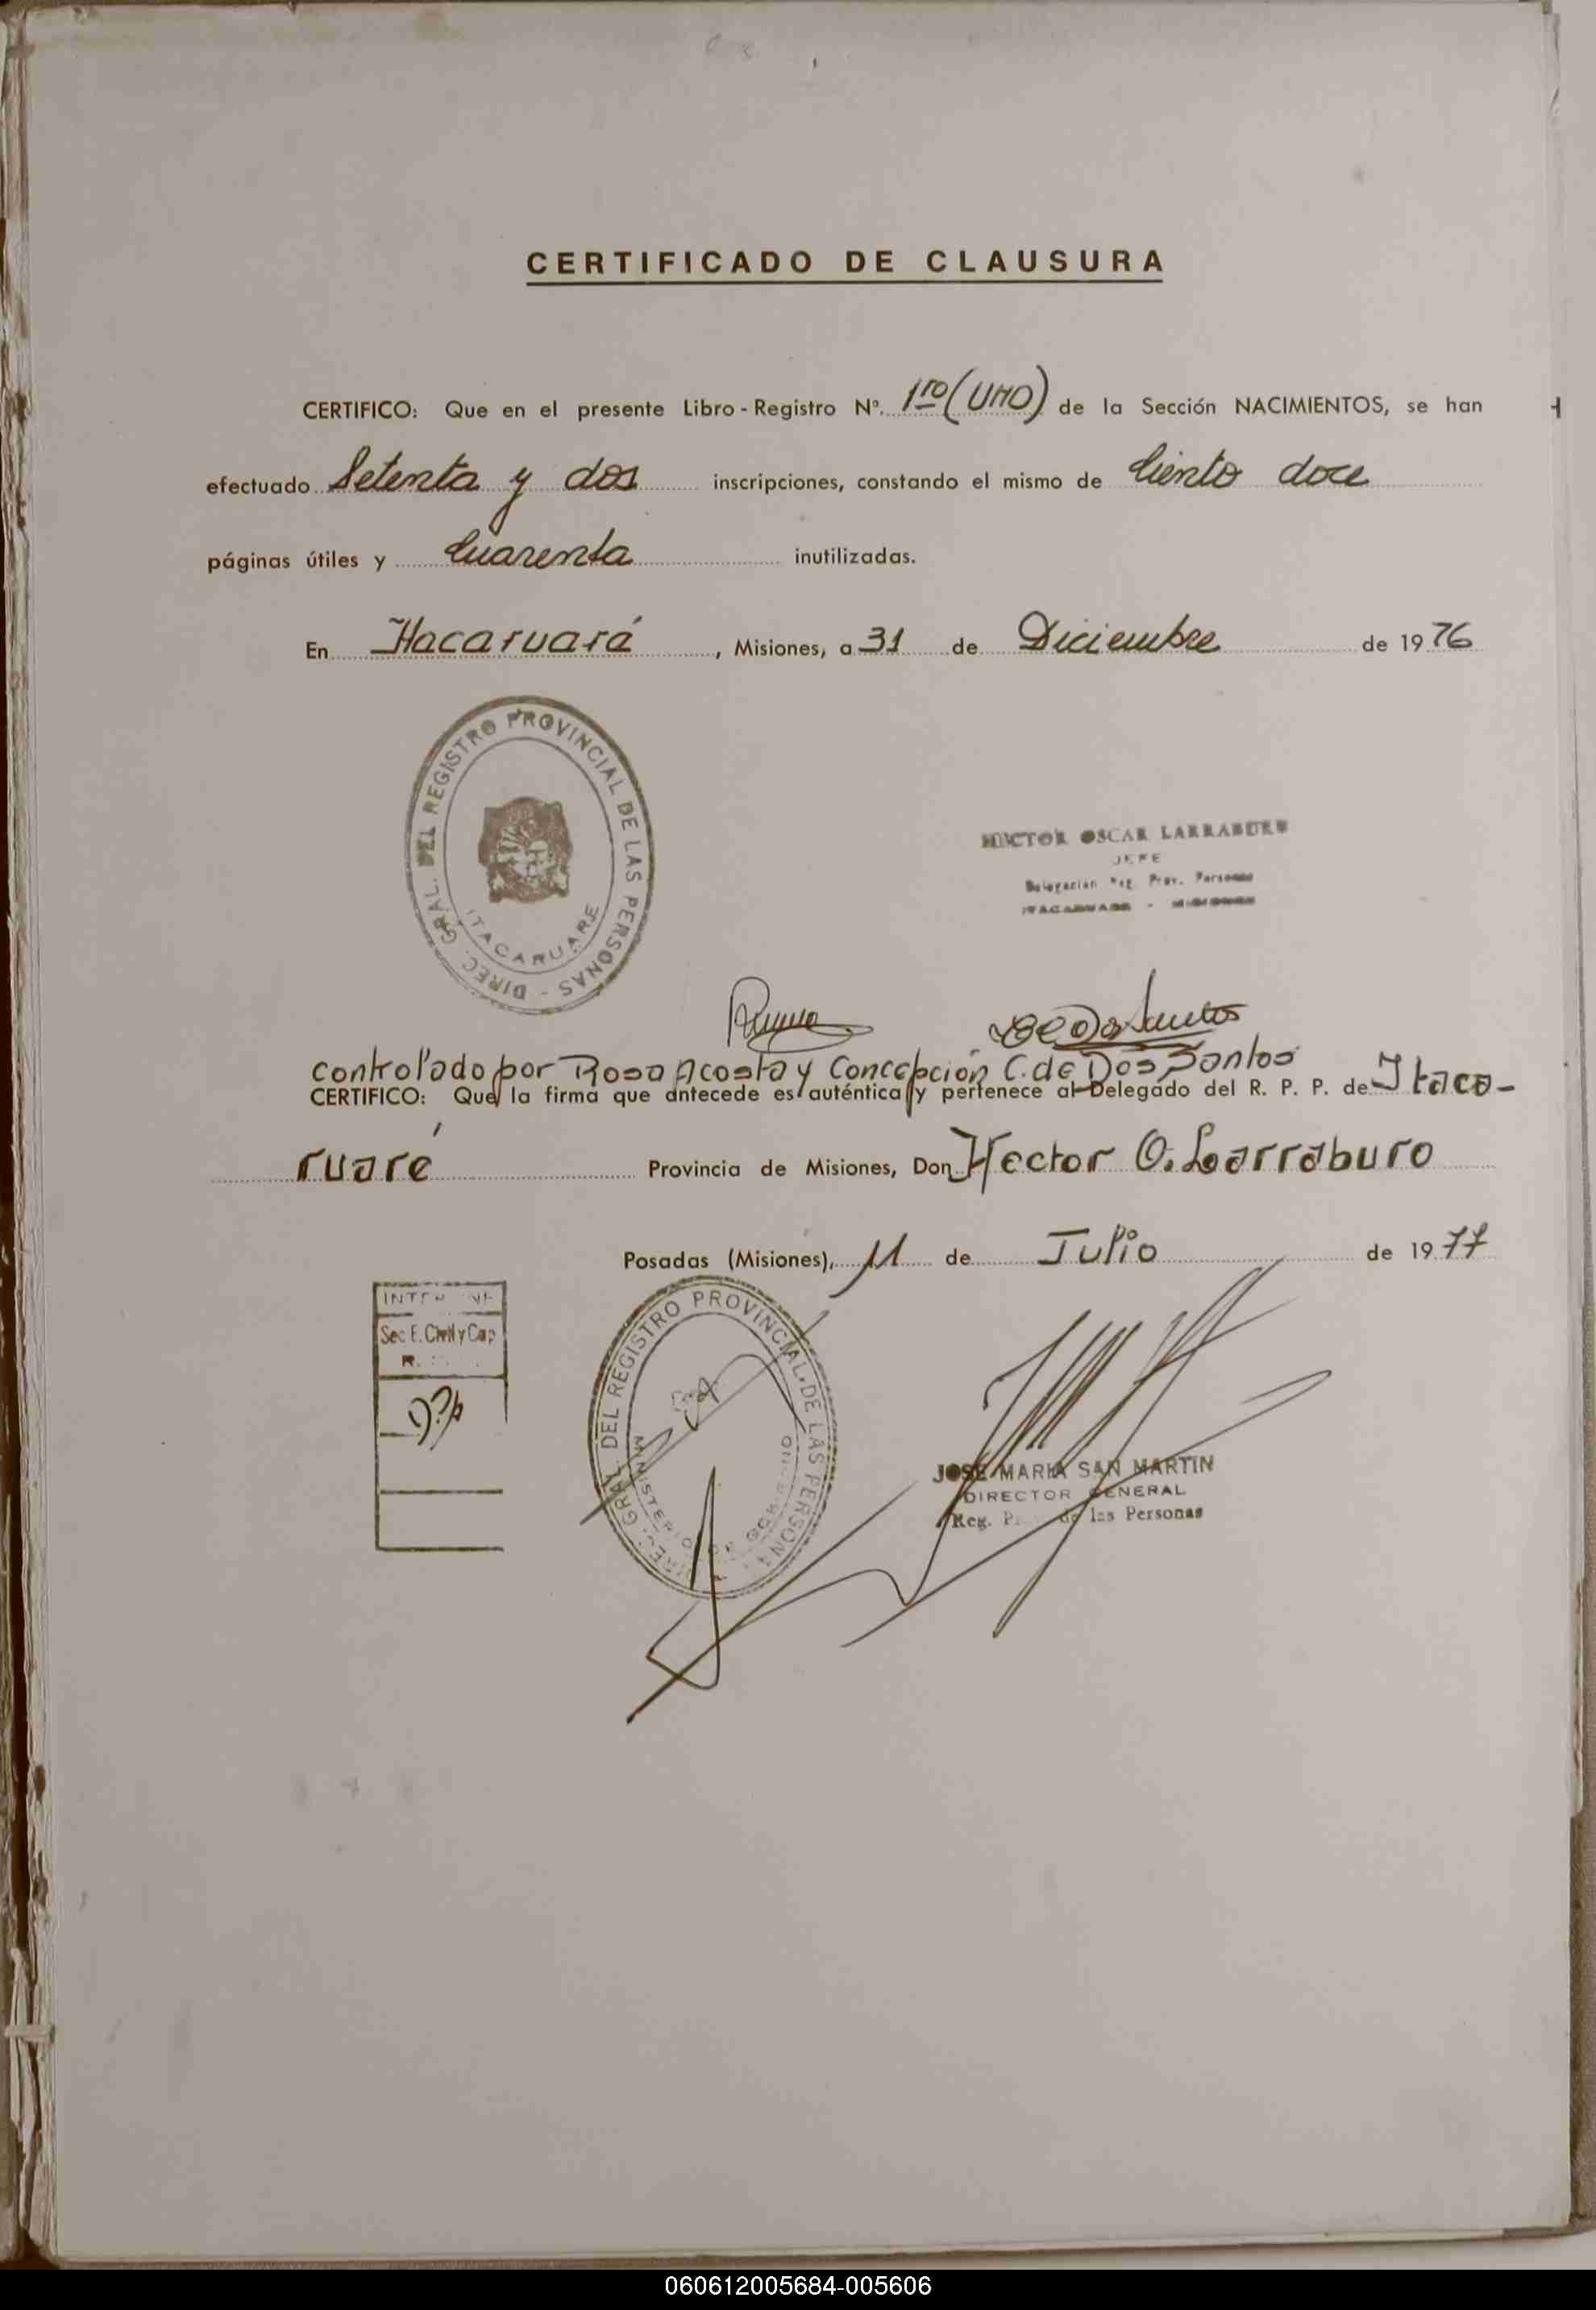 CERTIFICADO DE CLAUSURA
CERTIFICO: Que en el presente Libro - Registro Nº. 1ro (UNO) de la Sección NACIMIENTOS, se han
efectuado Setenta y dos inscripciones, constando el mismo de Ciento doce
páginas útiles y Cuarenta inutilizadas.
En Itacaruaré, Misiones, a 31 de Diciembre de 1976
DIREC. GRAL. DEL REGISTRO PROVINCIAL DE LAS PERSONAS -
ITACARUARE
HECTOR OSCAR LARRABURO
JEFE
Delegación Reg. Prov. Personas
ITACARUARE - MISIONES
Dos Santos
Controlado por Rosa Acosta y Concepción C. de Dos Santos
CERTIFICO: Que la firma que antecede es auténtica y pertenece al Delegado del R. P. P. de Itaca-
ruaré Provincia de Misiones, Don Hector O. Larraburo
Posadas (Misiones), 11 de Julio de 1977
Sec E. Civil y Cap
R.
DIREC. GRAL. DEL REGISTRO PROVINCIAL DE LAS PERSONAS
MINISTERIO DE GOBIERNO
JOSE MARIA SAN MARTIN
DIRECTOR GENERAL
Reg. de las Personas
060612005684-005606